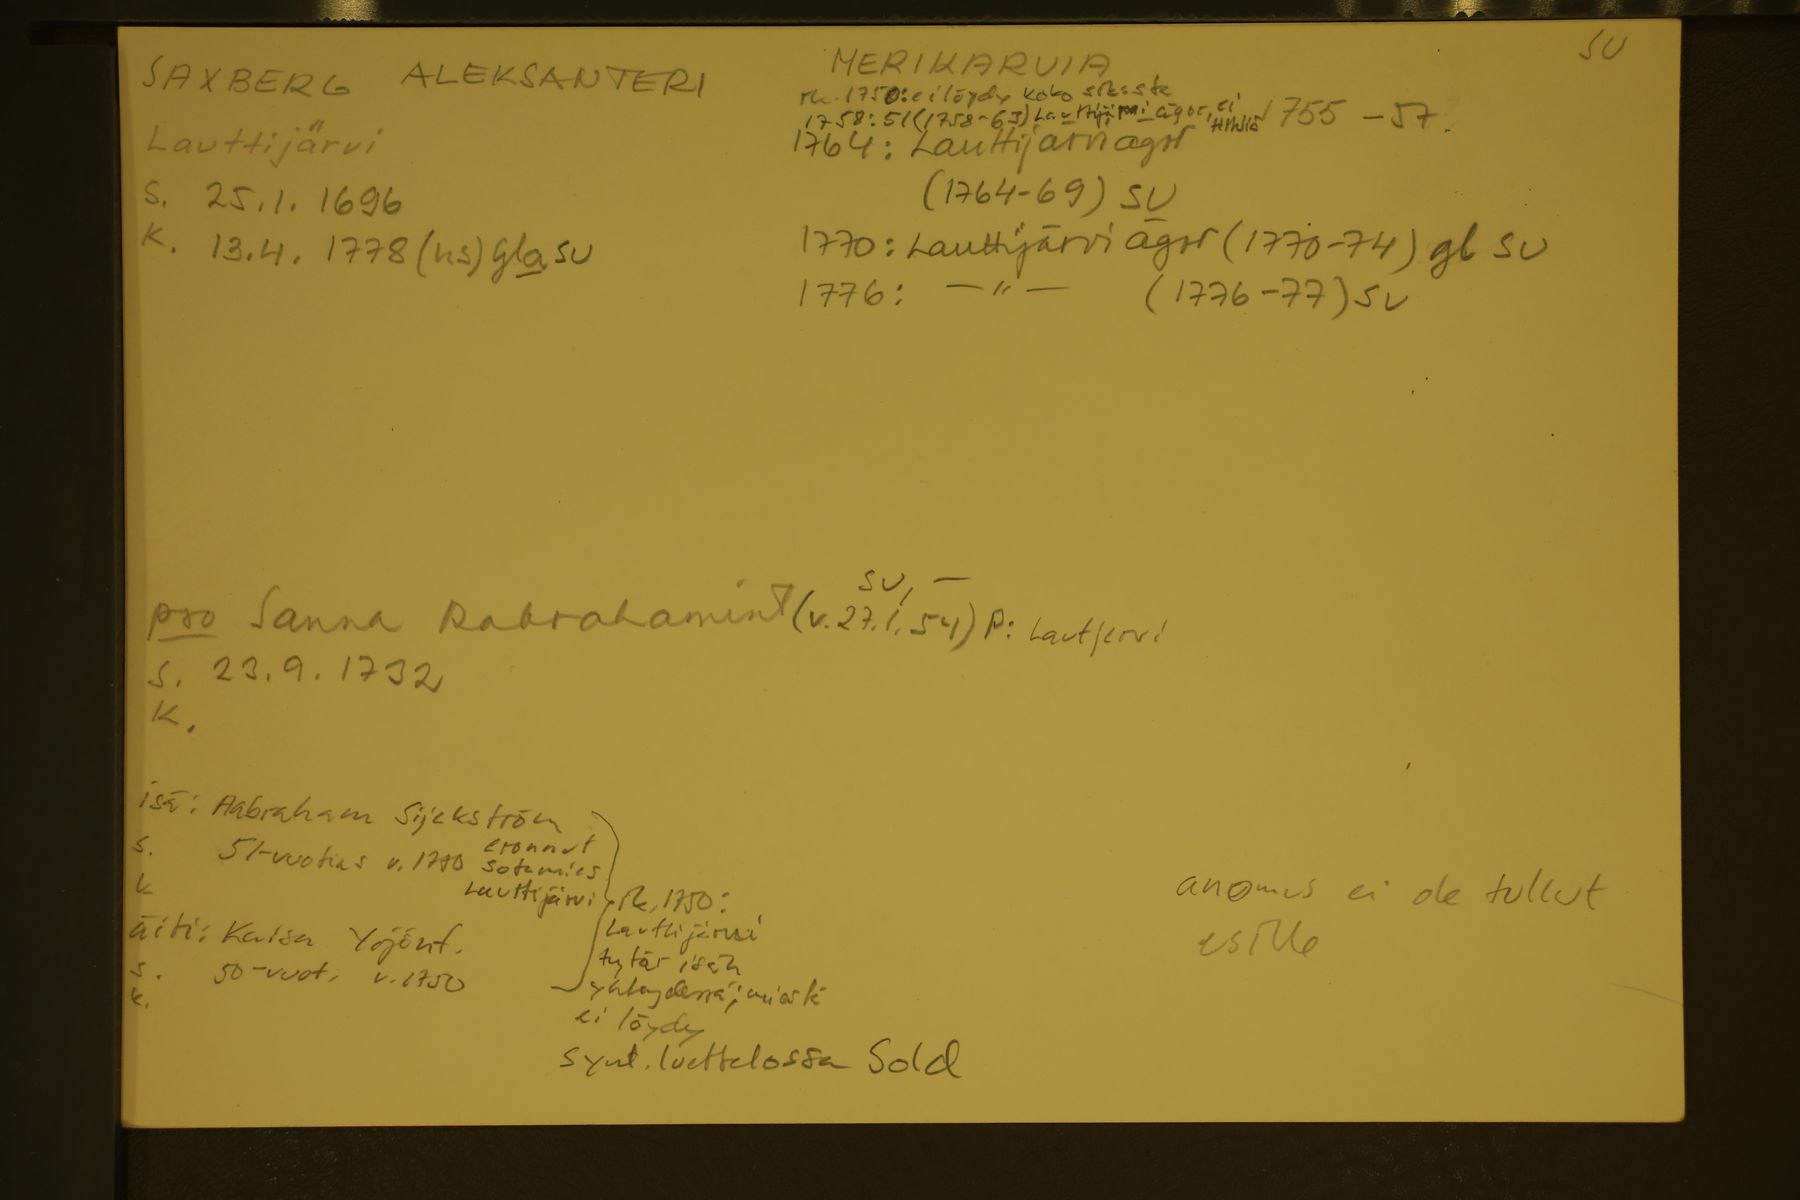 SU
SAXBERG ALEKSANTERI
Lauttijärvi
s. 25.1. 1696
k. 13.4. 1778 (ks) gla SU
MERIKARVIA
rk. 1750: ei löydy koko
1758: 51 (1758-63) Lauttijärvi ägor, ei 1755 - 57.
1764: Lauttijärvi ägor
(1764-69) SU
1770: Lauttijärvi ägor (1770-74) gl SU
1776: — " — (1776-77) SU
SU, —
pro Sanna Aabrahamint (v. 27.1.54) p: Lautjervi
s. 23.9. 1732
k.
isä: Aabraham Sijekström
s. 51-vuotias v. 1750 eronnut
sotamies
k Lauttijärvi
äiti: Kaisa Yrjönt.
s. 50-vuot. v. 1750
k.
rk. 1750:
Lauttijärvi
tytär isän
yhteydessä; miestä
ei löydy
synt. luettelossa Sold
anomus ei ole tullut
esille